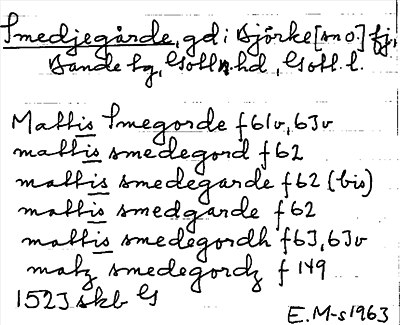 Smedjegårde, gd i Björke [sn o.] fj,
Dande hg, Gotl. n. hd, Gotl. l.
Mattis Smegorde f 61v, 63v
mattis smedegord f 62
mattis smedegarde f 62 (bis)
mattis smedgarde f 62
mattis smedegordh f 63, 63v
matz smedegordz f 149
1523 skb G
E. M-s 1963